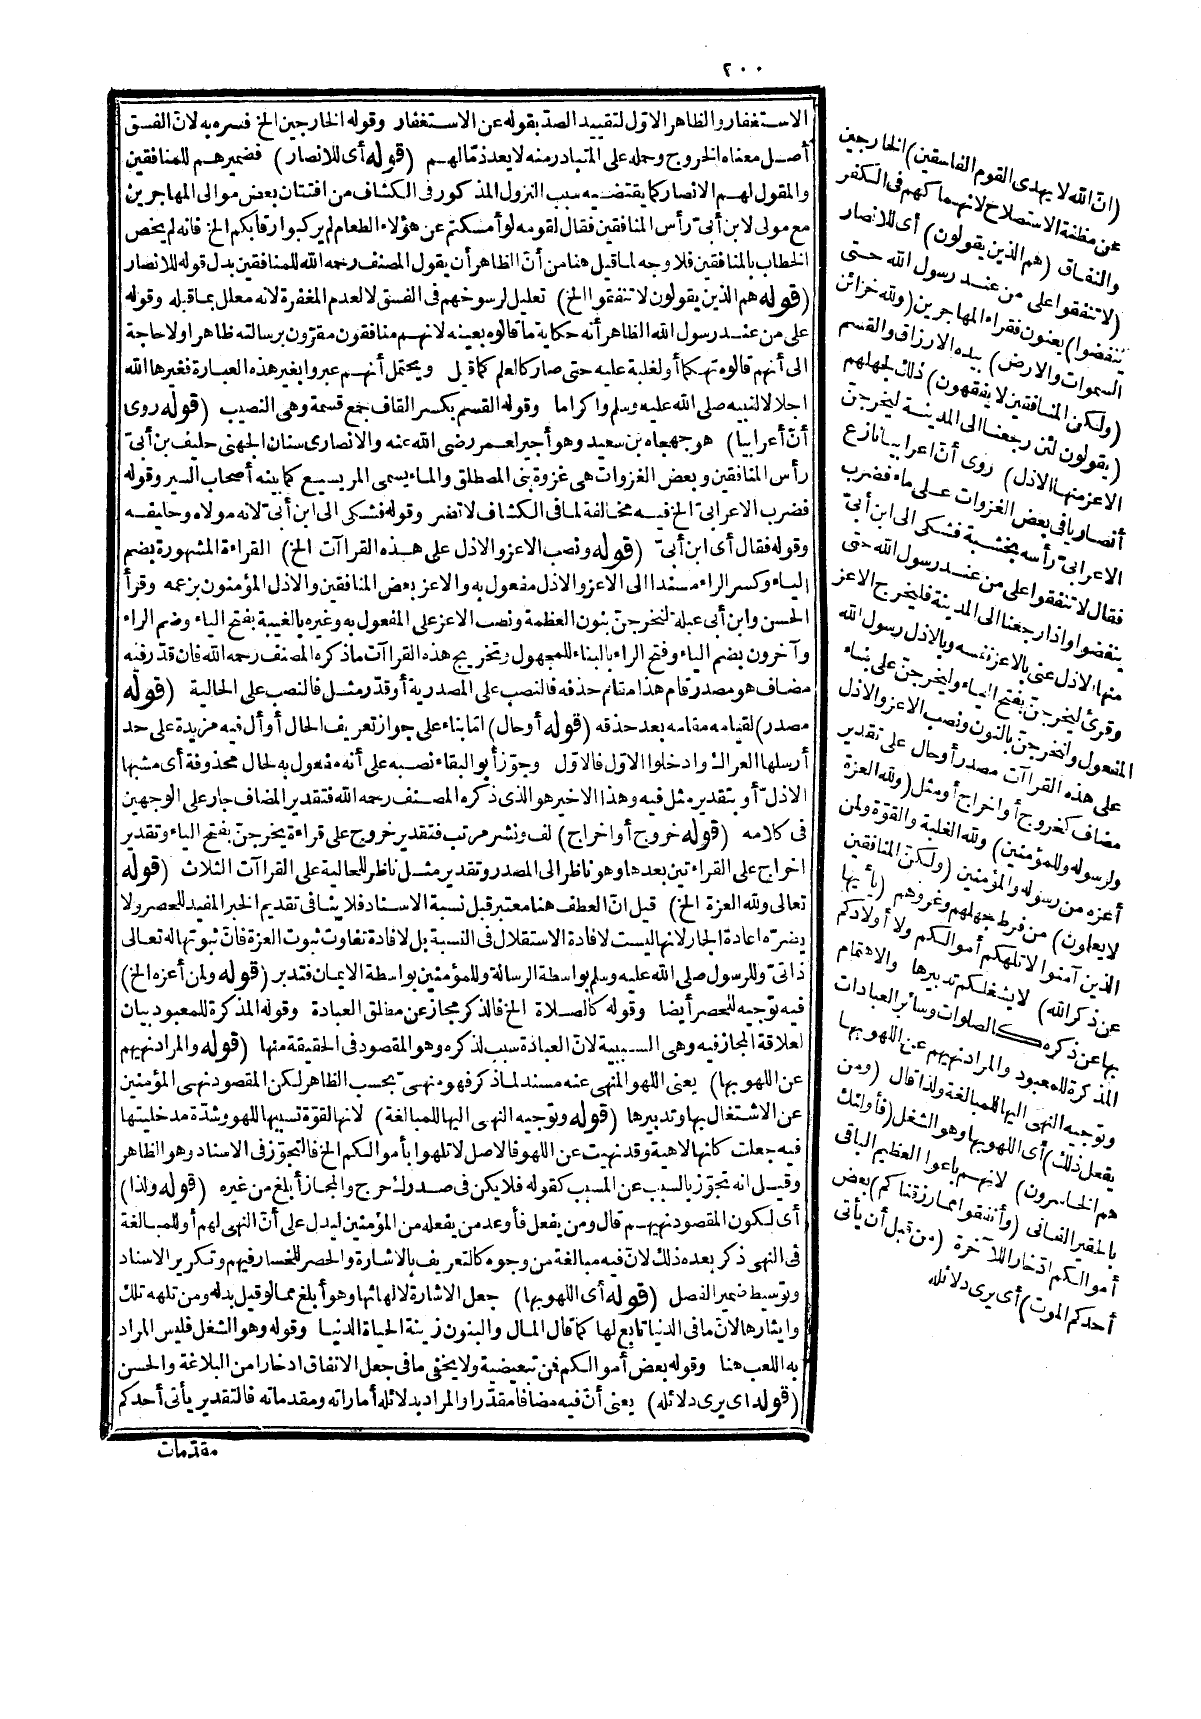 ٢٠٠
الاستغفار والظاهر الاوّل لتقييد الصدّ بقوله عن الاستغفار وقوله الخارجين الخ فسره به لانّ الفسق
أصل معناه الخروج وحمله على المتبادر منه لا يعد ذمّا لهم (قوله أى للانصار) فضميرهم للمنافقين
والمقول لهم الانصار كما يقتضيه سبب النزول المذكور فى الكشاف من افتتان بعض موالى المهاجرين
مع مولى لابن أبىّ رأس المنافقين فقال لقومه لو أمسكتم عن هؤلاء الطعام لم يركبوا رقابكم الخ فانه لم يخص
الخطاب بالمنافقين فلا وجه لما قيل هنا من أنّ الظاهر أن يقول المصنف رحمه الله للمنافقين بدل قوله للانصار
(قوله هم الذين يقولون لا تنفقوا الخ) تعليل لرسوخهم فى الفسق لا لعدم المغفرة لانه معلل بما قبله وقوله
على من عند رسول الله الظاهر أنه حكاية ما قالوه بعينه لانهم منافقون مقرّون برسالته ظاهرا ولا حاجة
الى أنهم قالوه تهكما أو لغلبة عليه حتى صار كالعلم كما قيل ويحتمل أنهم عبروا بغير هذه العبارة فغيرها الله
اجلالا لنبيه صلى الله عليه وسلم واكراما وقوله القسم بكسر القاف جمع قسمة وهى النصيب (قوله روى
أنّ أعرابيا) هو جهجاه بن سعيد وهو أجير لعمر رضى الله عنه والانصارى سنان الجهنى حليف بن أبىّ
رأس المنافقين وبعض الغزوات هى غزوة بنى المصطلق والماء يسمى المريسيع كما بينه أصحاب السير وقوله
فضرب الاعرابىّ الخ فيه مخالفة لما فى الكشاف لا تضر وقوله فشكى الى ابن أبىّ لانه مولاه وحليفه
وقوله فقال أى ابن أبىّ (قوله ونصب الاعز والاذل على هذه القراآت الخ) القراءة المشهورة بضم
الياء وكسر الراء مسندا الى الاعز والاذل مفعول به والاعز بعض المنافقين والاذل المؤمنون بزعمه وقرأ
الحسن وابن أبى عبلة لنخرجنّ بنون العظمة ونصب الاعز على المفعول به وغيره بالغيبة بفتح الياء وضم الراء
وآخرون بضم الياء وفتح الراء بالبناء للمجهول وتخريج هذه القراآت ما ذكره المصنف رحمه الله فان قدّر فيه
مضاف هو مصدر قام هذا مقام حذفه فالنصب على المصدرية أو قدّر مثل فالنصب على الحالية (قوله
مصدر) لقيامه مقامه بعد حذفه (قوله أو حال) امّا بناء على جواز تعريف الحال أو أل فيه مزيدة على حد
أرسلها العراك وادخلوا الاوّل فالاوّل وجوّز أبو البقاء نصبه على أنه مفعول به لحال محذوفة أى مشبها
الاذلّ أو بتقدير مثل فيه وهذا الاخير هو الذى ذكره المصنف رحمه الله فتقدير المضاف جار على الوجهين
فى كلامه (قوله خروج أو اخراج) لف ونشر مرتب فتقدير خروج على قراءة يخرجنّ بفتح الياء وتقدير
اخراج على القراءتين بعدها وهو ناظر الى المصدر وتقدير مثل ناظر للحالية على القراآت الثلاث (قوله
تعالى ولله العزة الخ) قيل انّ العطف هنا معتبر قبل نسبة الاسناد فلا ينافى تقديم الخبر المفيد للحصر ولا
يضرّه اعادة الجار لانها ليست لافادة الاستقلال فى النسبة بل لافادة تفاوت ثبوت العزة فانّ ثبوتها له تعالى
ذاتىّ وللرسول صلى الله عليه وسلم بواسطة الرسالة وللمؤمنين بواسطة الايمان فتدبر (قوله ولمن أعزه الخ)
فيه توجيه للحصر أيضا وقوله كالصلاة الخ فالذكر مجاز عن مطلق العبادة وقوله المذكرة للمعبود بيان
لعلاقة المجاز فيه وهى السببية لانّ العبادة سبب لذكره وهو المقصود فى الحقيقة منها (قوله والمراد نهيهم
عن اللهو بها) يعنى اللهو المنهى عنه مسند لما ذكر فهو منهىّ بحسب الظاهر لكن المقصود نهى المؤمنين
عن الاشتغال بها وتدبيرها (قوله وتوجيه النهى اليها للمبالغة) لانها لقوّة تسببها للهو وشدّة مدخليتها
فيه جعلت كأنها لاهية وقد نهيت عن اللهو فالاصل لا تلهوا بأموالكم الخ فالتجوّز فى الاسناد وهو الظاهر
وقيل انه تجوّز بالسبب عن المسبب كقوله فلا يكن فى صدرك حرج والمجاز أبلغ من غيره (قوله ولذا)
أى لكون المقصود نهيهم قال ومن يفعل فأوعد من يفعله من المؤمنين ليدل على أنّ النهى لهم أو للمبالغة
فى النهى ذكر بعده ذلك لانّ فيه مبالغة من وجوه كالتعريف بالاشارة والحصر للخسار فيهم وتكرير الاسناد
وتوسيط ضمير الفصل (قوله أى اللهو بها) جعل الاشارة لالهائها وهو أبلغ مما لو قيل بدله ومن تلهه تلك
وايثارها لانّ ما فى الدنيا تابع لها كما قال المال والبنون زينة الحياة الدنيا وقوله وهو الشغل فليس المراد
به اللعب هنا وقوله بعض أموالكم فمن تبعيضية ولا يخفى ما فى جعل الانفاق ادخارا من البلاغة والحسن
(قوله اى يرى دلائله) يعنى أنّ فيه مضافا مقدّرا والمراد بدلائله أماراته ومقدماته فالتقدير يأتى أحدكم
مقدّمات
(انّ الله لا يهدى القوم الفاسقين) الخارجين
عن مظنة الاستصلاح لانهماكهم فى الكفر
والنفاق (هم الذين يقولون) أى للانصار
(لا تنفقوا على من عند رسول الله حتى
ينفضوا) يعنون فقراء المهاجرين (ولله خزائن
السموات والارض) بيده الارزاق والقسم
(ولكن المنافقين لا يفقهون) ذلك لجهلهم
(يقولون لئن رجعنا الى المدينة ليخرجنّ
الاعز منها الاذل) روى أنّ اعرابيا نازع
أنصاريا فى بعض الغزوات على ماء فضرب
الاعرابىّ رأسه بخشبة فشكى الى ابن أبىّ
فقال لا تنفقوا على من عند رسول الله حتى
ينفضوا واذا رجعنا الى المدينة فليخرج الاعز
منها الاذل عنى بالاعز نفسه وبالاذل رسول الله
وقرئ ليخرجنّ بفتح الياء وليخرجنّ على بناء
المفعول ولنخرجنّ بالنون ونصب الاعز والاذل
على هذه القراآت مصدر أو حال على تقدير
مضاف كخروج أو اخراج أو مثل (ولله العزة
ولرسوله وللمؤمنين) ولله الغلبة والقوّة ولمن
أعزه من رسوله والمؤمنين (ولكنّ المنافقين
لا يعلمون) من فرط جهلهم وغرورهم (يأيها
الذين آمنوا لا تلهكم أموالكم ولا أولادكم
عن ذكر الله) لا يشغلكم تدبيرها والاهتمام
بها عن ذكره كالصلوات وسائر العبادات
المذكرة للمعبود والمراد نهيهم عن اللهو بها
وتوجيه النهى اليها للمبالغة ولذا قال (ومن
يفعل ذلك) أى اللهو بها وهو الشغل (فأولئك
هم الخاسرون) لانهم باعوا العظيم الباقى
بالحقير الفانى (وأنفقوا مما رزقناكم) بعض
أموالكم ادّخارا للآخرة (من قبل أن يأتى
أحدكم الموت) أى يرى دلائله